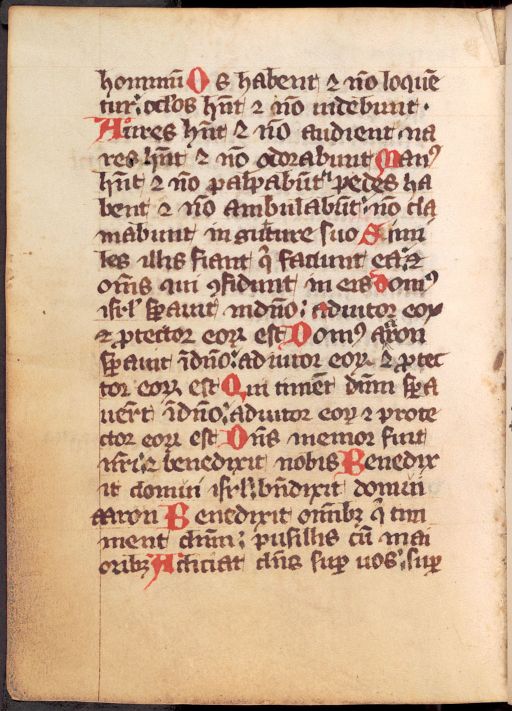 hominū Os habent ⁊ nō loquē
tur: oc̄los hn̄t ⁊ nō uidebunt.
Aures hn̄t ⁊ nō audient na
res hn̄t ⁊ nō odorabunt Manꝰ
hn̄t ⁊ nō palpabūt: pedes ha
bent ⁊ nō ambulabūt: nō cla
mabunt in guture suo Simi
les illis fiant q̄ faciunt ea: ⁊
om̄s qui ꝯfidunt in eis Domꝰ
isrl̄ spauit in dn̄o: adiutor eoꝝ
⁊ ꝓtector eoꝝ est Domꝰ aaron
spauit ī dn̄o: adiutor eoꝝ ⁊ ꝓtec
tor eoꝝ est Qui timēt dn̄m spa
uert̄ ī dn̄o: adiutor eoꝝ ⁊ prote
ctor eoꝝ est Dn̄s memor fuit
nr̄i: ⁊ benedixit nobis Benedix
it domui isrl̄: bn̄dixit domui
aaron Benedixit omībꝫ q̄ tim
ment dn̄m: pusillis cū mai
oribꝫ Adiciat dn̄s suꝑ uos: suꝑ